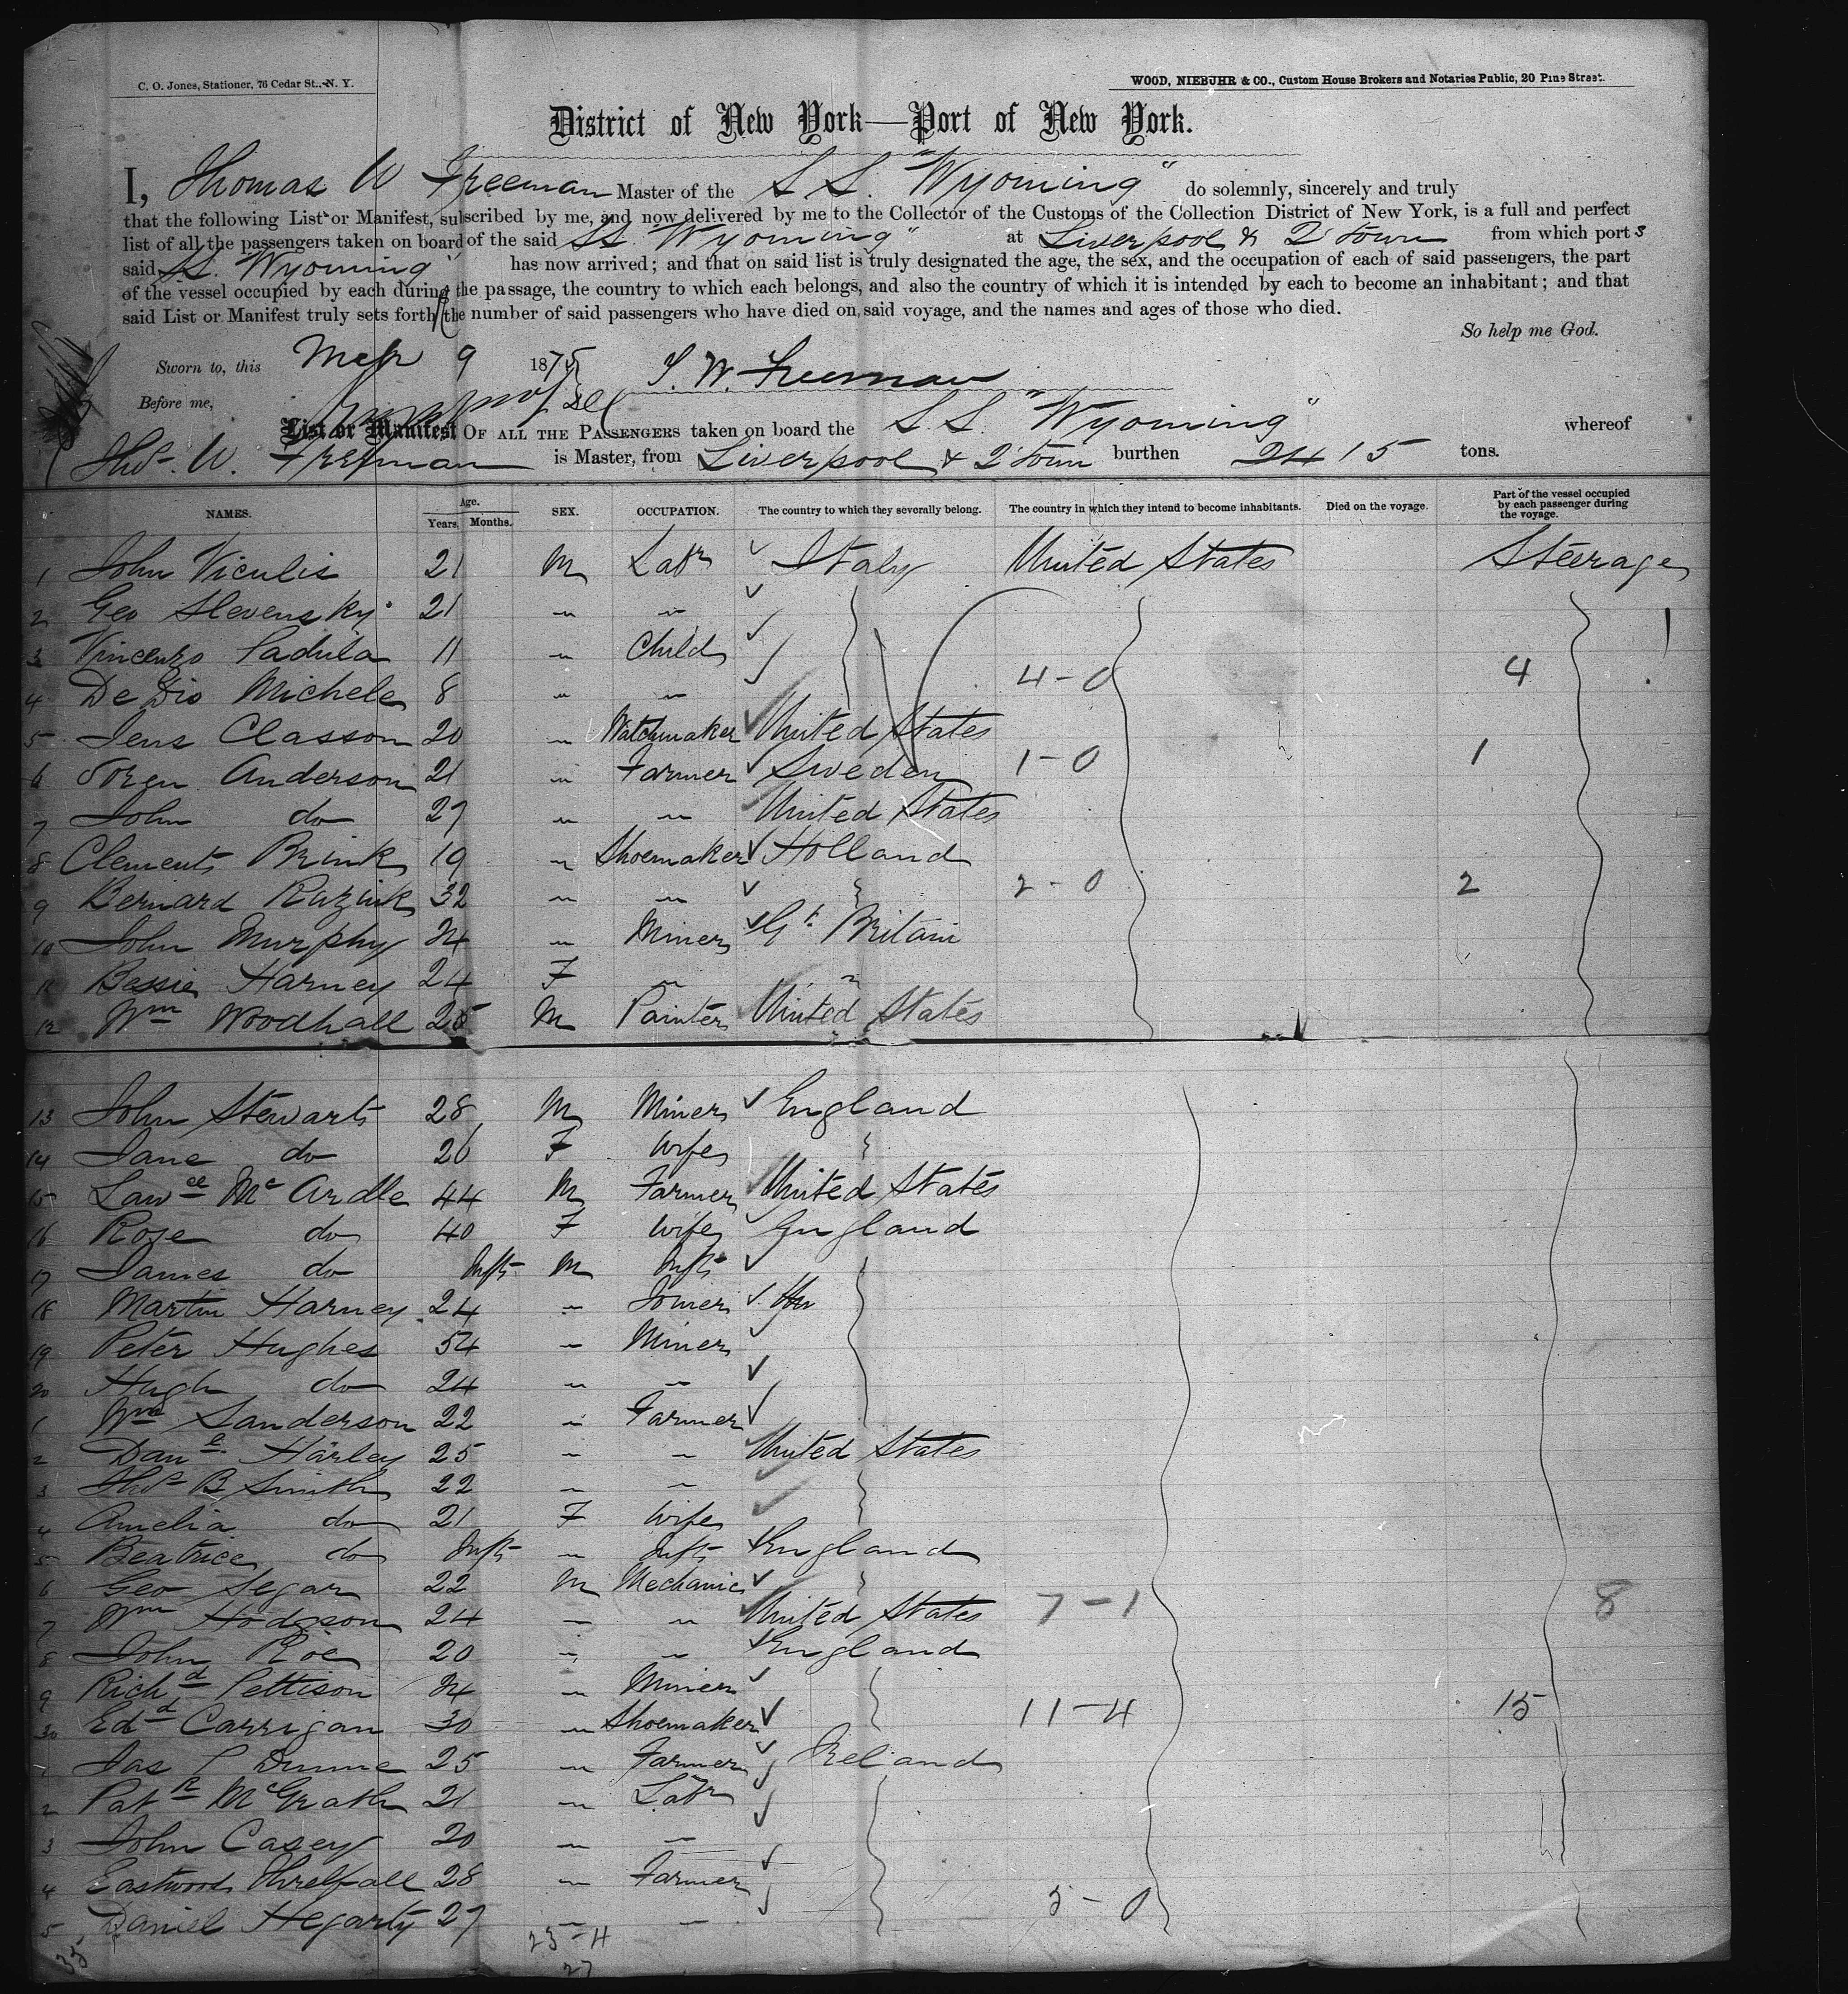 C. O. Jones, Stationer, 76 Cedar St., N. Y.
WOOD, NIEBUHR & CO., Custom House Brokers and Notaries Public, 20 Pine Street.
District of New York—Port of New York.
I, Thomas W Freeman Master of the S S. "Wyoming" do solemnly, sincerely and truly
that the following List or Manifest, subscribed by me, and now delivered by me to the Collector of the Customs of the Collection District of New York, is a full and perfect
list of all the passengers taken on board of the said SS. "Wyoming" at Liverpool & Q Town from which port s
said SS. "Wyoming" has now arrived; and that on said list is truly designated the age, the sex, and the occupation of each of said passengers, the part
of the vessel occupied by each during the passage, the country to which each belongs, and also the country of which it is intended by each to become an inhabitant; and that
said List or Manifest truly sets forth the number of said passengers who have died on said voyage, and the names and ages of those who died.
So help me God.
Sworn to, this 9 1875 T. W. Freeman
Before me,
List or Manifest OF ALL THE PASSENGERS taken on board the S.S. "Wyoming" whereof
Thos. W. Freeman is Master, from Liverpool & Q Town burthen 2415 tons.
NAMES. Age. Years, Months. SEX. OCCUPATION. The country to which they severally belong. The country in which they intend to become inhabitants. Died on the voyage. Part of the vessel occupied by each passenger during the voyage.
1 John Viculis 21 M Labr Italy United States Steerage
2 Geo Slevensky 21 " "
3 Vincenzo Padula 11 " Child
4 De Dio Michele 8 " " 4-0 4
5 Jens Classon 20 " Watchmaker United States
6 Soren Anderson 21 " Farmer Sweden 1-0 1
7 John do 27 " " United States
8 Clement Brink 19 " Shoemaker Holland
9 Bernard Razink 32 " " 2-0 2
10 John Murphy 24 " Miner Gt. Britain
11 Bessie Harney 24 F " "
12 Wm Woodhall 25 M Painter United States
13 John Stewart 28 M Miner England
14 Jane do 26 F Wife
15 Lawce McArdle 44 M Farmer United States
16 Rose do 40 F Wife England
17 James do Inft M Inft
18 Martin Harney 24 " Joiner
19 Peter Hughes 54 " Miner
20 Hugh do 24 " "
1 Wm Sanderson 22 " Farmer
2 Danl Harley 25 " " United States
3 Thos B Smith 22 " "
4 Amelia do 21 F Wife
5 Beatrice do Inft " Inft England
6 Geo Segar 22 M Mechanic
7 Wm Hodgson 24 " " United States 7-1 8
8 John Roe 20 " " England
9 Richd Pettison 24 " Miner
30 Edd Carrigan 30 " Shoemaker 11-4 15
1 Jas P Dunne 25 " Farmer Ireland
2 Patk McGrath 21 " Labr
3 John Casey 20 " "
4 Eastwood Threlfall 28 " Farmer
5 Daniel Hegarty 27 " " 5-0
35 23-4
27